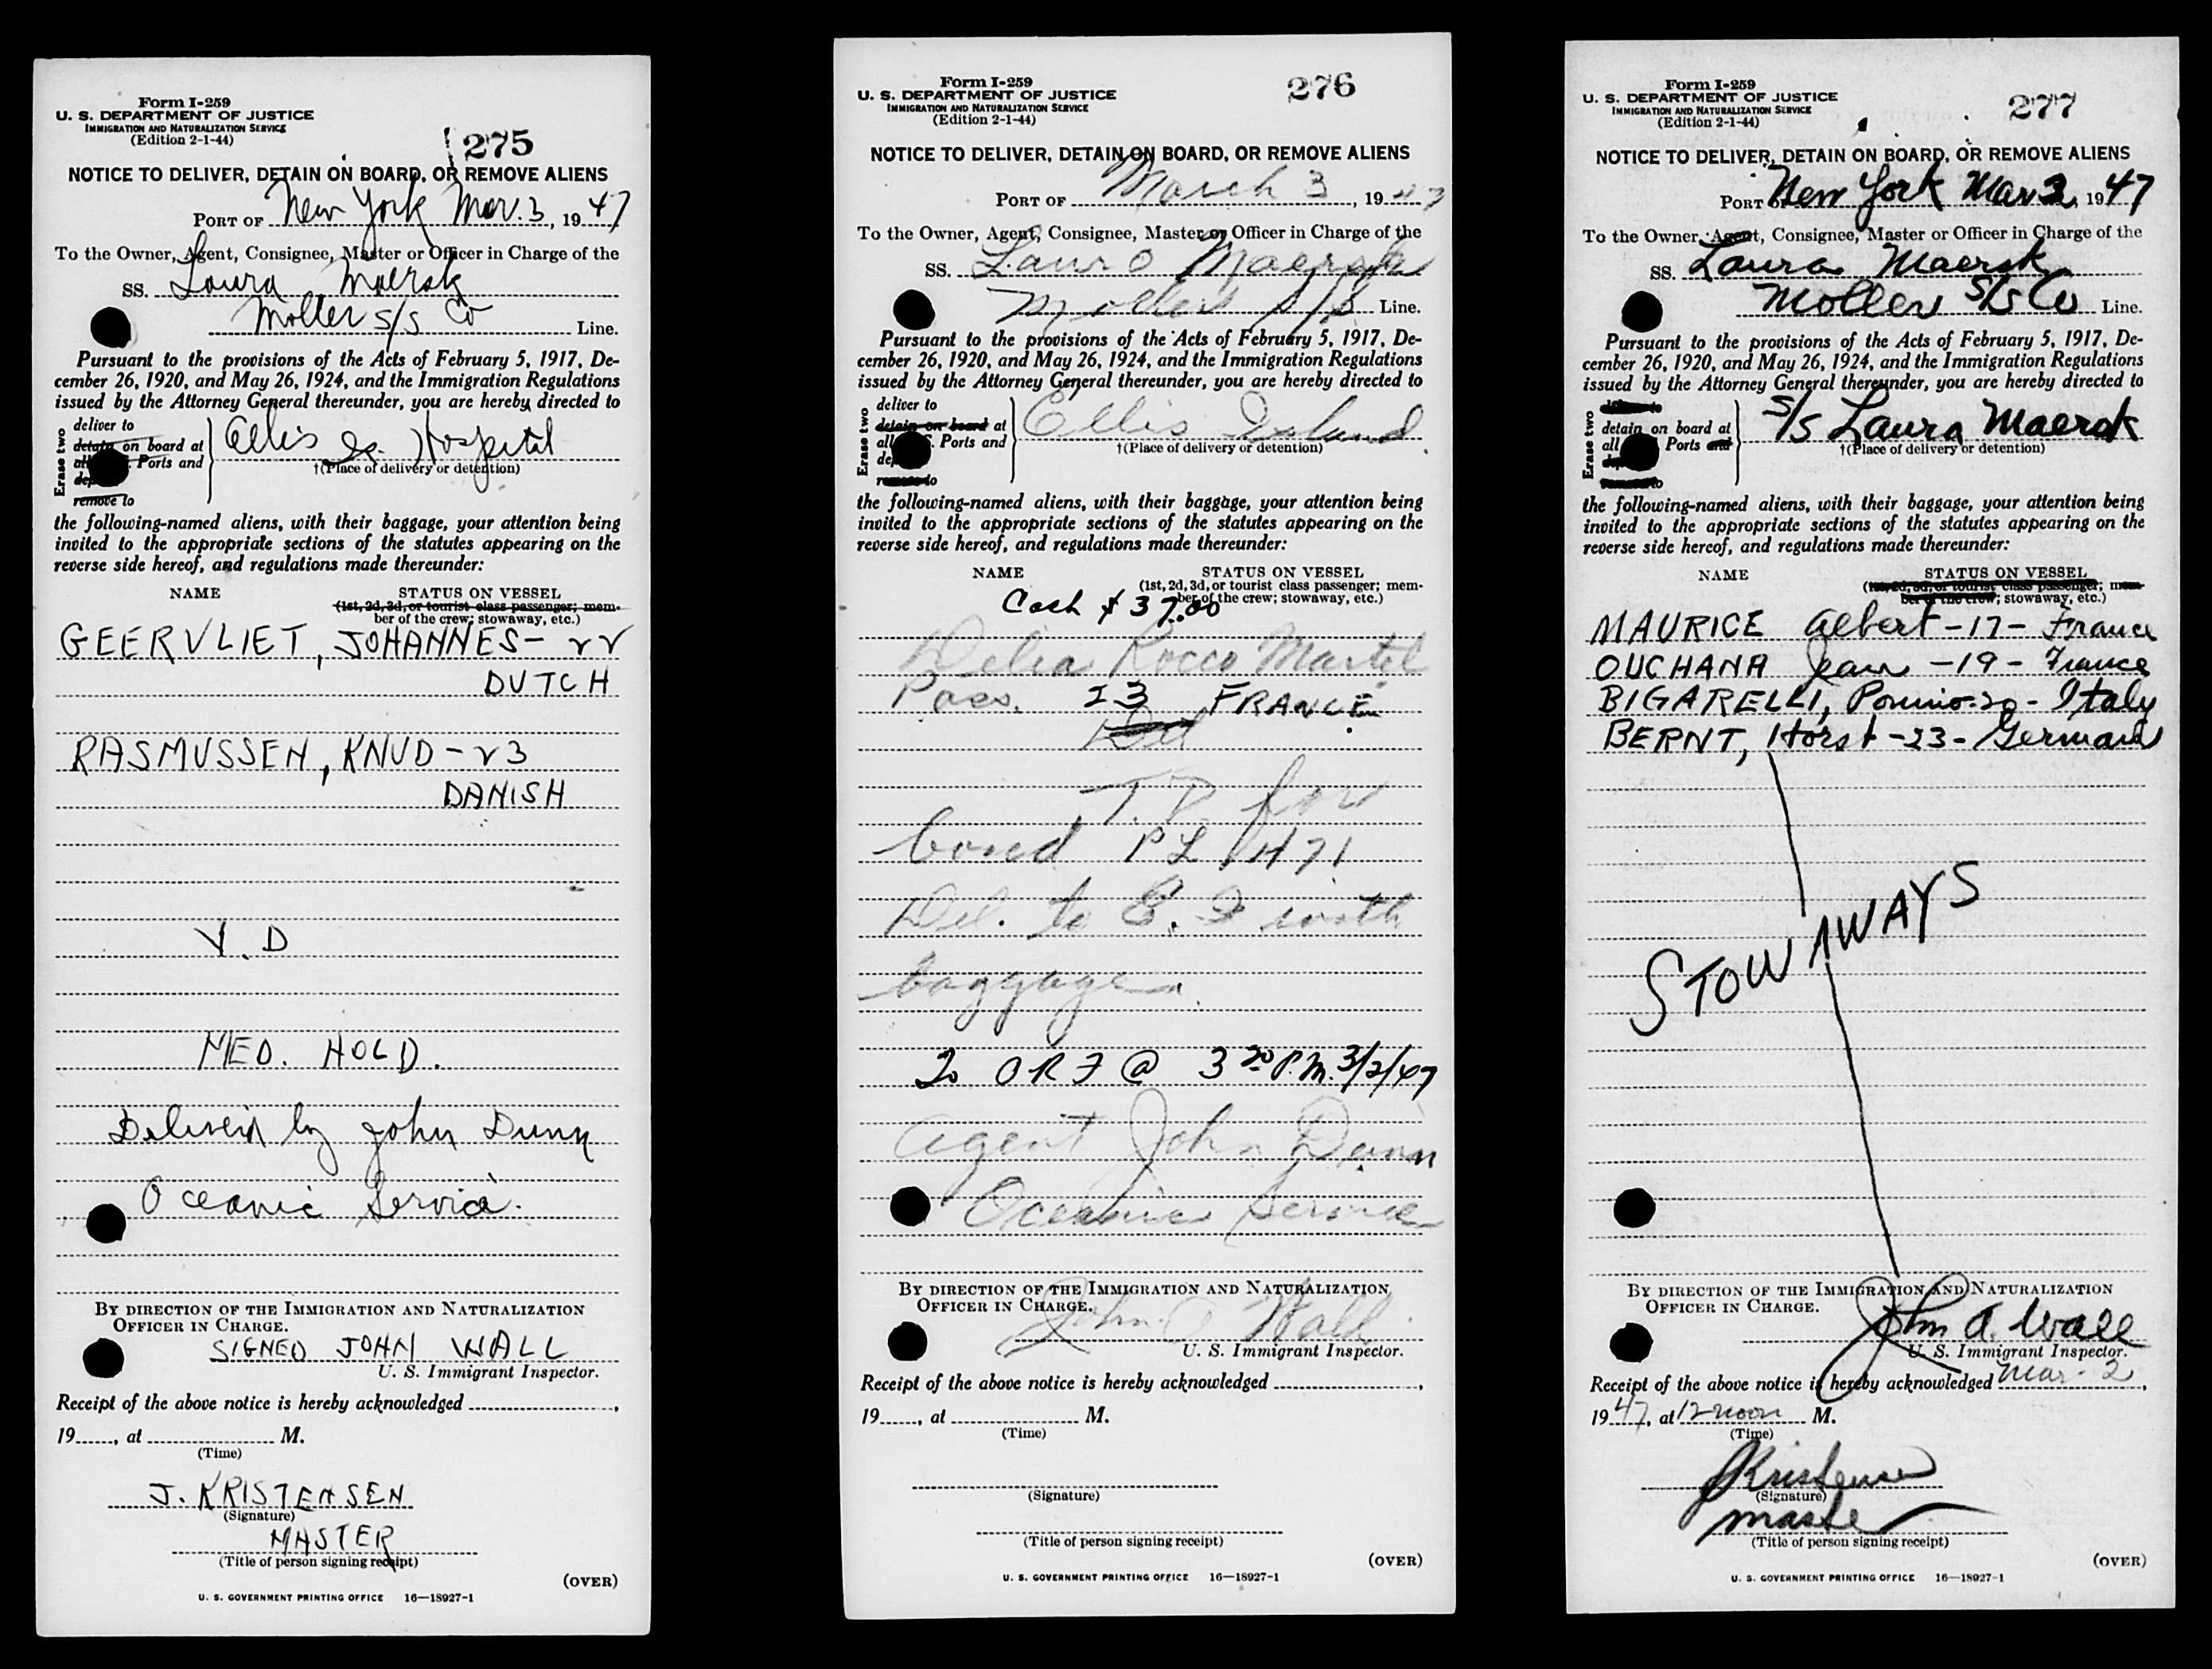 Form I-259
U. S. DEPARTMENT OF JUSTICE
IMMIGRATION AND NATURALIZATION SERVICE
(Edition 2-1-44)
275
NOTICE TO DELIVER, DETAIN ON BOARD, OR REMOVE ALIENS
PORT OF New York Mar. 3, 1947
To the Owner, Agent, Consignee, Master or Officer in Charge of the
SS. Laura Maersk
Moller S/S Co Line.
Pursuant to the provisions of the Acts of February 5, 1917, De-
cember 26, 1920, and May 26, 1924, and the Immigration Regulations
issued by the Attorney General thereunder, you are hereby directed to
Erase two
deliver to
detain on board at
all Ports and
remove to
Ellis Is. Hospital
†(Place of delivery or detention)
the following-named aliens, with their baggage, your attention being
invited to the appropriate sections of the statutes appearing on the
reverse side hereof, and regulations made thereunder:
NAME STATUS ON VESSEL
(1st, 2d, 3d, or tourist class passenger; mem-
ber of the crew; stowaway, etc.)
GEERVLIET, JOHANNES - 22
DUTCH
RASMUSSEN, KNUD - 23
DANISH
V. D
MED. HOLD.
Deliverd by John Dunn
Oceanic Service.
BY DIRECTION OF THE IMMIGRATION AND NATURALIZATION
OFFICER IN CHARGE.
SIGNED JOHN WALL
U. S. Immigrant Inspector.
Receipt of the above notice is hereby acknowledged
19 , at M.
(Time)
J. KRISTENSEN
(Signature)
MASTER
(Title of person signing receipt)
(OVER)
U. S. GOVERNMENT PRINTING OFFICE 16—18927-1
Form I-259
U. S. DEPARTMENT OF JUSTICE
IMMIGRATION AND NATURALIZATION SERVICE
(Edition 2-1-44)
276
NOTICE TO DELIVER, DETAIN ON BOARD, OR REMOVE ALIENS
PORT OF March 3, 1947
To the Owner, Agent, Consignee, Master or Officer in Charge of the
SS. Laura Maersk
S/S Line.
Pursuant to the provisions of the Acts of February 5, 1917, De-
cember 26, 1920, and May 26, 1924, and the Immigration Regulations
issued by the Attorney General thereunder, you are hereby directed to
Erase two
deliver to
detain on board at
all Ports and
remove to
Ellis Island
†(Place of delivery or detention)
the following-named aliens, with their baggage, your attention being
invited to the appropriate sections of the statutes appearing on the
reverse side hereof, and regulations made thereunder:
NAME STATUS ON VESSEL
(1st, 2d, 3d, or tourist class passenger; mem-
ber of the crew; stowaway, etc.)
Cash $37.00
Delia Rocco Martel
Pass. 23 FRANCE
T. D. for
bond PL 1471
Del. to E. I with
baggage
To ORF @ 3 20 P.M. 3/2/47
Agent John Dunn
Oceanic Service
BY DIRECTION OF THE IMMIGRATION AND NATURALIZATION
OFFICER IN CHARGE.
John A Wall
U. S. Immigrant Inspector.
Receipt of the above notice is hereby acknowledged
19 , at M.
(Time)
(Signature)
(Title of person signing receipt)
(OVER)
U. S. GOVERNMENT PRINTING OFFICE 16—18927-1
Form I-259
U. S. DEPARTMENT OF JUSTICE
IMMIGRATION AND NATURALIZATION SERVICE
(Edition 2-1-44)
277
NOTICE TO DELIVER, DETAIN ON BOARD, OR REMOVE ALIENS
PORT OF New York Mar 3, 1947
To the Owner, Agent, Consignee, Master or Officer in Charge of the
SS. Laura Maersk
Moller S/S Co Line.
Pursuant to the provisions of the Acts of February 5, 1917, De-
cember 26, 1920, and May 26, 1924, and the Immigration Regulations
issued by the Attorney General thereunder, you are hereby directed to
Erase two
detain on board at
all Ports and
S/S Laura Maersk
†(Place of delivery or detention)
the following-named aliens, with their baggage, your attention being
invited to the appropriate sections of the statutes appearing on the
reverse side hereof, and regulations made thereunder:
NAME STATUS ON VESSEL
(1st, 2d, 3d, or tourist class passenger; mem-
ber of the crew; stowaway, etc.)
MAURICE Albert - 17 - France
OUCHANA Jean - 19 - France
BIGARELLI, Pomino - 20 - Italy
BERNT, Horst - 23 - German
STOWAWAYS
BY DIRECTION OF THE IMMIGRATION AND NATURALIZATION
OFFICER IN CHARGE.
John A. Wall
U. S. Immigrant Inspector.
Receipt of the above notice is hereby acknowledged Mar. 2,
1947, at 12 noon M.
(Time)
JKristensen
(Signature)
master
(Title of person signing receipt)
(OVER)
U. S. GOVERNMENT PRINTING OFFICE 16—18927-1